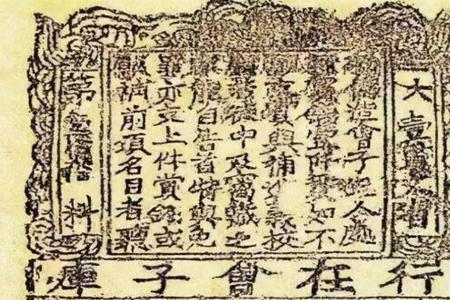 大壹貫文省
造會子犯人處
賞錢壹阡貫如不
願支賞與補進義校
尉若徒中及窩藏之
家能自告首特與免
罪亦支上件賞錢或
願補前項名目者聽
第 料
行在會子庫